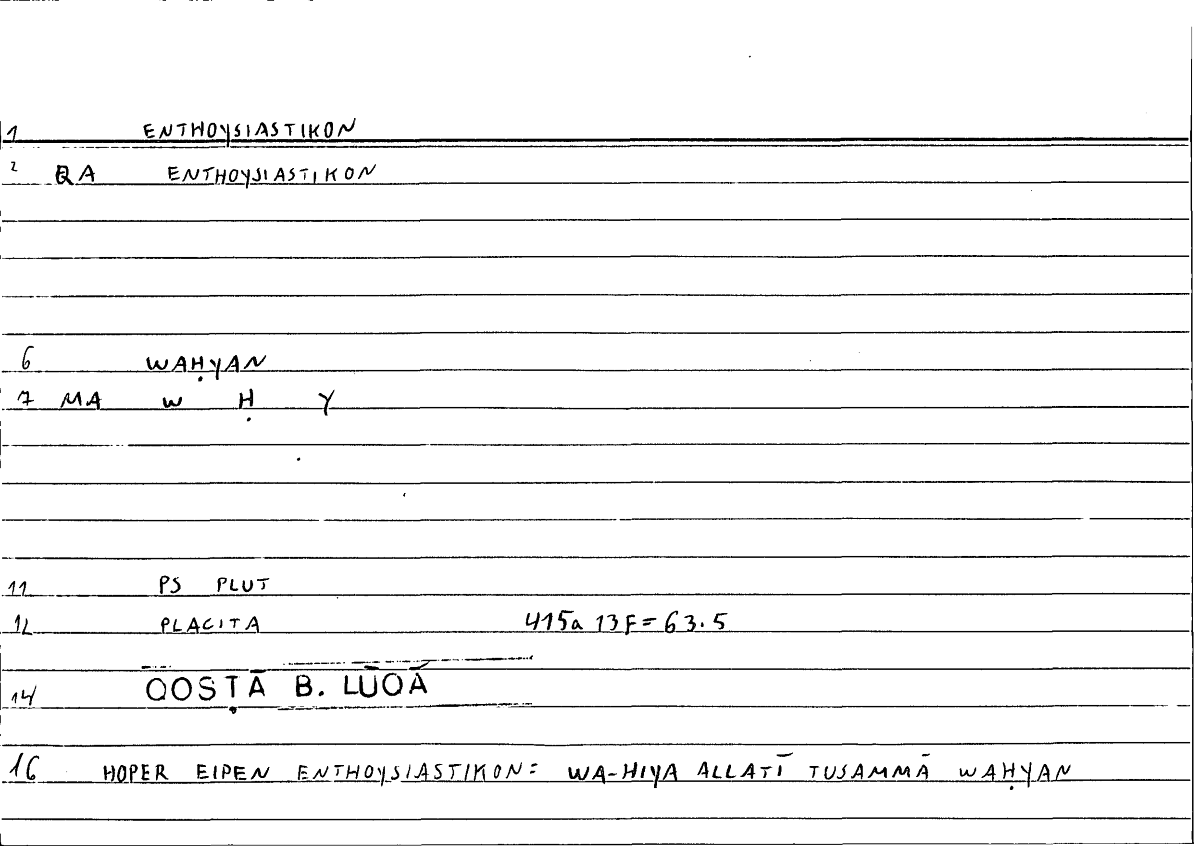 1 ENTHOYSIASTIKON
2 QA ENTHOYSIASTIKON
6 WAḤYAN
7 MA W Ḥ Y
11 PS PLUT
12 PLACITA 415a 13F = 63.5
14 QOSṬĀ B. LŪQĀ
16 HOPER EIPEN ENTHOYSIASTIKON: WA-HIYA ALLATĪ TUSAMMĀ WAḤYAN